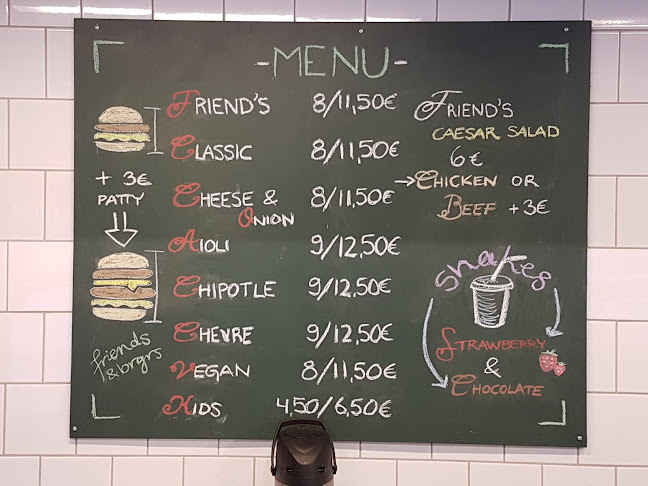 -MENU-
FRIEND'S 8/11,50€
CLASSIC 8/11,50€
CHEESE & 8/11,50€
ONION
AIOLI 9/12,50€
CHIPOTLE 9/12,50€
CHEVRE 9/12,50€
VEGAN 8/11,50€
KIDS 4,50/6,50€
+ 3€
PATTY
friends
& brgrs
FRIEND'S
CAESAR SALAD
6€
→CHICKEN OR
BEEF +3€
Shakes
STRAWBERRY
&
CHOCOLATE